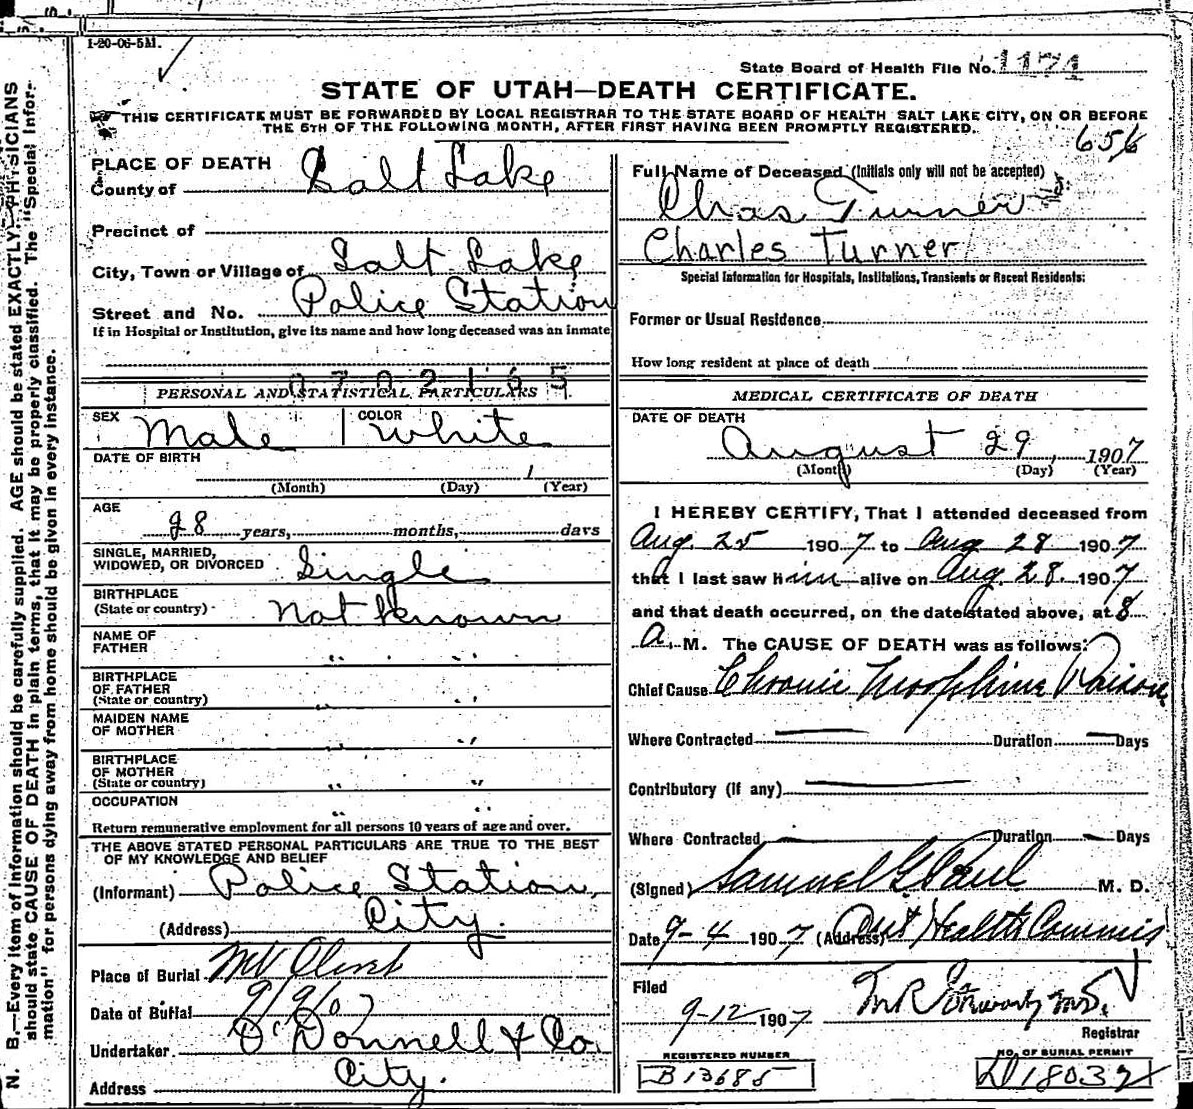 1-20-06-5M.
State Board of Health File No. 1171
STATE OF UTAH—DEATH CERTIFICATE.
THIS CERTIFICATE MUST BE FORWARDED BY LOCAL REGISTRAR TO THE STATE BOARD OF HEALTH SALT LAKE CITY, ON OR BEFORE
THE 5TH OF THE FOLLOWING MONTH, AFTER FIRST HAVING BEEN PROMPTLY REGISTERED.
656
PLACE OF DEATH
County of Salt Lake
Precinct of
City, Town or Village of Salt Lake
Street and No. Police Station
If in Hospital or Institution, give its name and how long deceased was an inmate
0702165
PERSONAL AND STATISTICAL PARTICULARS
SEX Male COLOR White
DATE OF BIRTH
(Month) (Day) (Year)
AGE
28 years, months, days
SINGLE, MARRIED,
WIDOWED, OR DIVORCED Single
BIRTHPLACE
(State or country) Not Known
NAME OF
FATHER " "
BIRTHPLACE
OF FATHER
(State or country) " "
MAIDEN NAME
OF MOTHER " "
BIRTHPLACE
OF MOTHER
(State or country) " "
OCCUPATION " "
Return remunerative employment for all persons 10 years of age and over.
THE ABOVE STATED PERSONAL PARTICULARS ARE TRUE TO THE BEST
OF MY KNOWLEDGE AND BELIEF
(Informant) Police Station,
(Address) City.
Place of Burial Mt Olivet
Date of Burial 9/9/07
Undertaker O'Donnell & Co.
Address City.
Full Name of Deceased (Initials only will not be accepted)
Chas Turner
Charles Turner
Special Information for Hospitals, Institutions, Transients or Recent Residents:
Former or Usual Residence
How long resident at place of death
MEDICAL CERTIFICATE OF DEATH
DATE OF DEATH
August 29, 1907
(Month) (Day) (Year)
I HEREBY CERTIFY, That I attended deceased from
Aug. 25 1907 to Aug 28 1907
that I last saw him alive on Aug. 28. 1907
and that death occurred, on the date stated above, at 8
A. M. The CAUSE OF DEATH was as follows:
Chief Cause Chronic Morphine Poison
Where Contracted — Duration — Days
Contributory (if any) —
Where Contracted — Duration — Days
(Signed) Samuel G. Paul M. D.
Date 9-4 1907 (Address) Health Commis
Filed
9-12 1907 M.D.
Registrar
REGISTERED NUMBER
B13685
NO. OF BURIAL PERMIT
D18032
N. B.—Every item of information should be carefully supplied. AGE should be stated EXACTLY. PHYSICIANS
should state CAUSE OF DEATH in plain terms, that it may be properly classified. The "Special Infor-
mation" for persons dying away from home should be given in every instance.